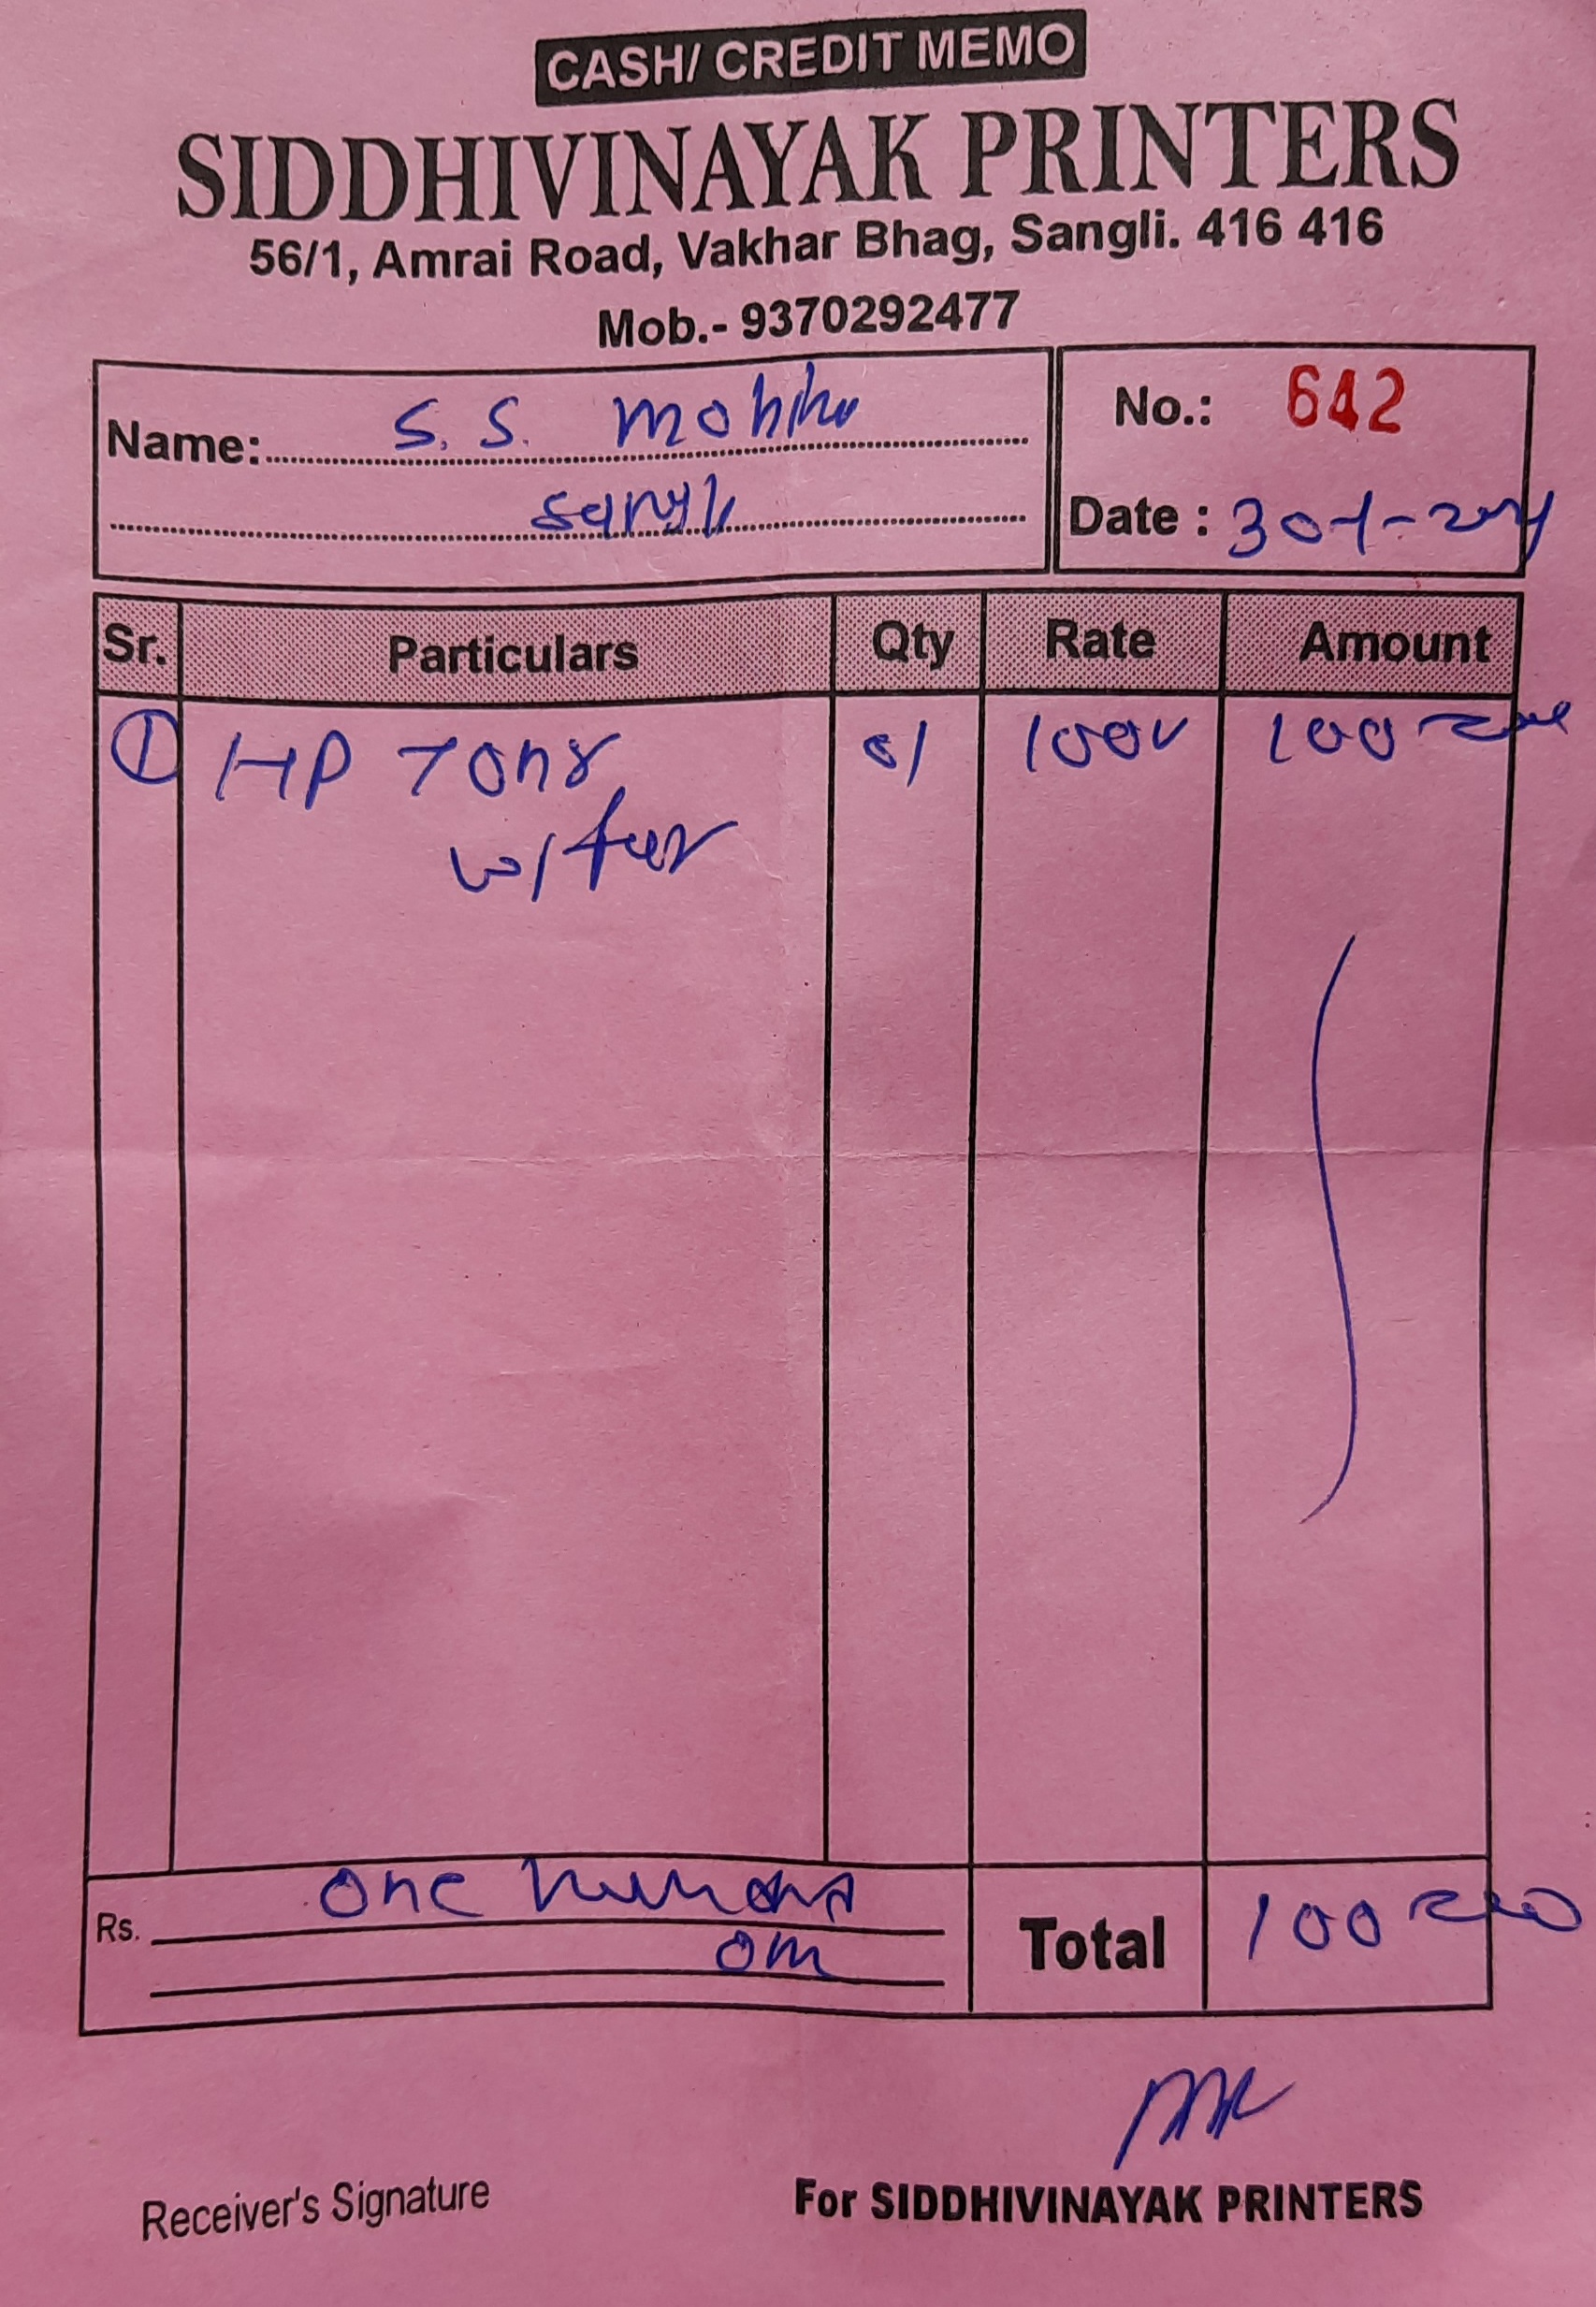 CASH/ CREDIT MEMO
SIDDHIVINAYAK PRINTERS
56/1, Amrai Road, Vakhar Bhag, Sangli. 416 416
Mob.- 9370292477
Name: S. S.
No.: 642
Date :
Sr. Particulars Qty Rate Amount
① HP 01 100
Rs. One
Total 100
Receiver's Signature
For SIDDHIVINAYAK PRINTERS